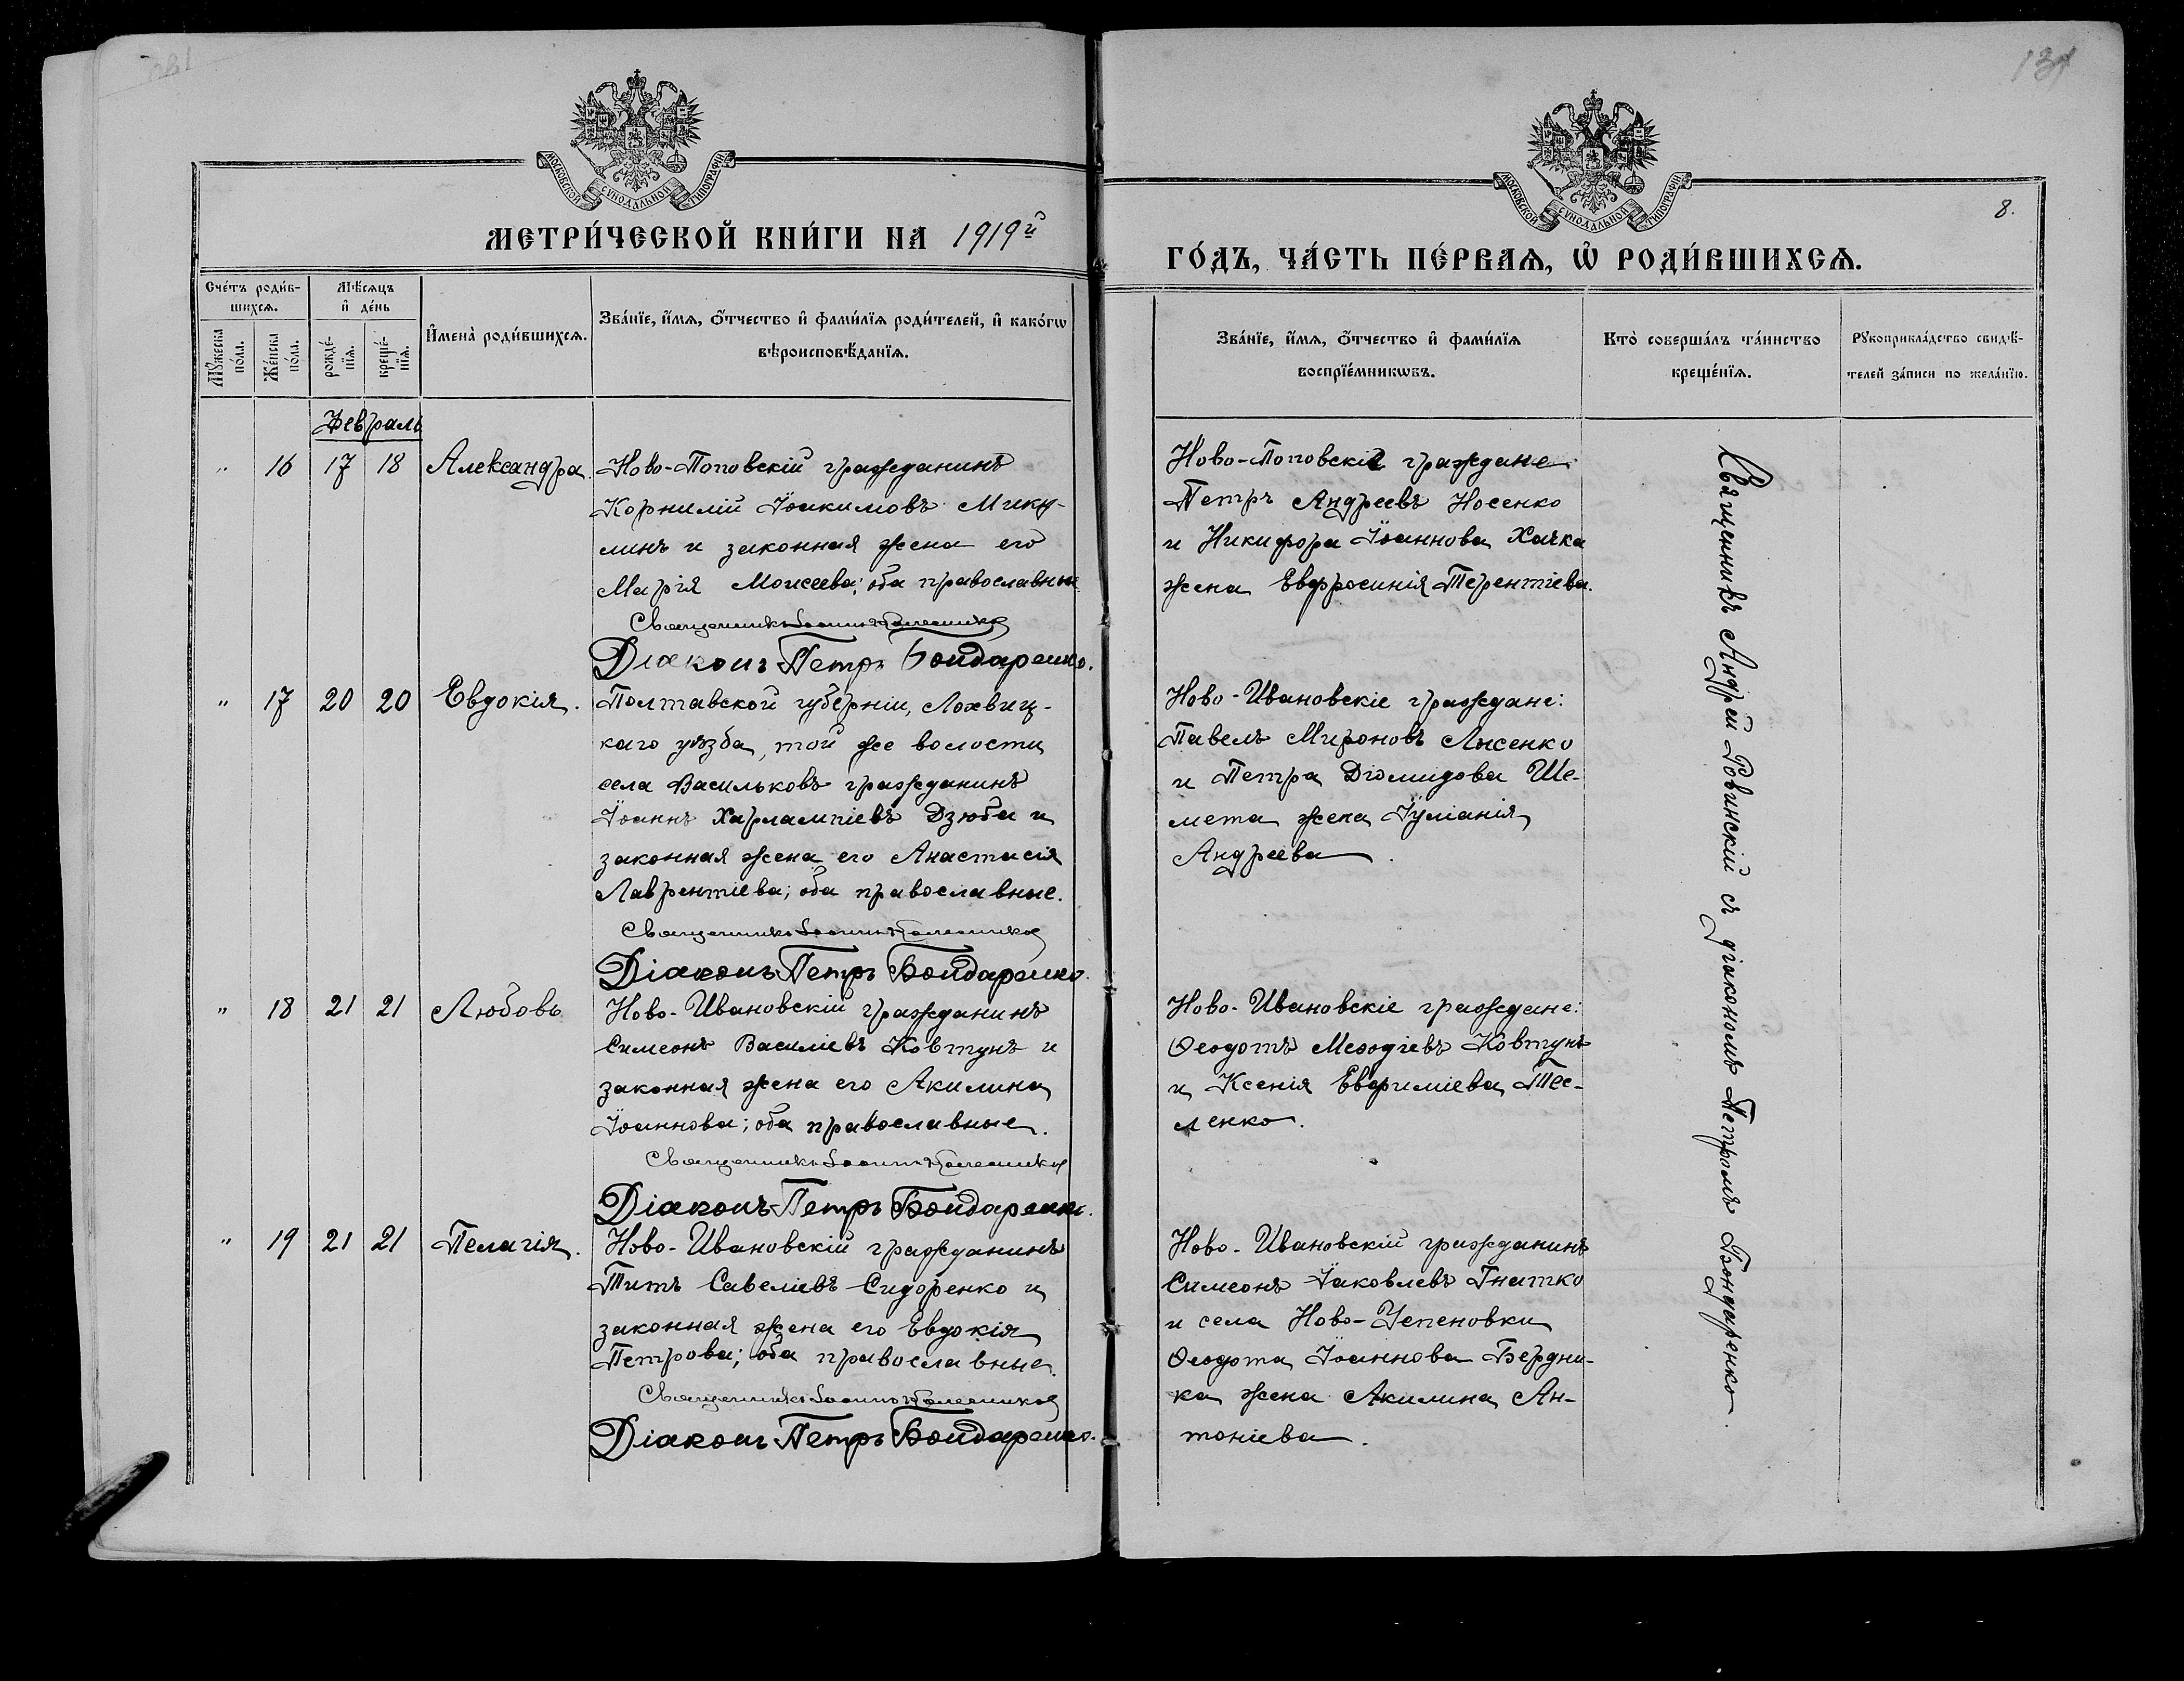 131
МОСКОВСКОЙ СѴНОДАЛЬНОЙ ТИПОГРАФІИ
МЕТРИ́ЧЕСКОЙ КНИ́ГИ НА 1919й
Сче́тъ роди́в-
шихсѧ.
Мѣ́сѧцъ
и҆ де́нь
Мꙋ́жеска
по́ла.
Же́нска
по́ла.
рожде́-
нїѧ.
креще́-
нїѧ.
И҆мена̀ роди́вшихсѧ.
Зва́нїе, и҆́мѧ, ѻ҆́тчество и҆ фами́лїѧ роди́телей, и҆ како́гѡ
вѣроисповѣ́данїѧ.
Февраль
" 16 17 18 Александра.
Ново-Поповскій гражданинъ
Корнилій Іоакимовъ Мику-
линъ и законная жена его
Марія Моисеева; оба православные
Священникъ Іоаннъ
Діаконъ Петръ Бондаренко.
" 17 20 20 Евдокія.
Полтавской губерніи, Лохвиц-
каго уѣзда, той же волости
села Васильковъ гражданинъ
Іоаннъ Харлампіевъ Дзюба и
законная жена его Анастасія
Лаврентіева; оба православные.
Священникъ Іоаннъ
Діаконъ Петръ Бондаренко.
" 18 21 21 Любовь
Ново-Ивановскій гражданинъ
Симеонъ Василіевъ Ковтунъ и
законная жена его Акилина
Іоаннова; оба православные.
Священникъ Іоаннъ
Діаконъ Петръ Бондаренко.
" 19 21 21 Пелагія.
Ново-Ивановскій гражданинъ
Титъ Савеліевъ Сидоренко и
законная жена его Евдокія
Петрова; оба православные.
Священникъ Іоаннъ
Діаконъ Петръ Бондаренко.
131
МОСКОВСКОЙ СѴНОДАЛЬНОЙ ТИПОГРАФІИ
8.
ГО́ДЪ, ЧА́СТЬ ПЕ́РВАѦ, Ѡ҆ РОДИ́ВШИХСѦ.
Зва́нїе, и҆́мѧ, ѻ҆́тчество и҆ фами́лїѧ
воспрїе́мникѡвъ.
Кто̀ соверша́лъ та́инство
креще́нїѧ.
Рꙋкоприкла́дство свидѣ́-
телей за́писи по жела́нїю.
Ново-Поповскіе граждане:
Петръ Андреевъ Носенко
и Никифора Іоаннова Хачка
жена Евфросинія Терентіева.
Ново-Ивановскіе граждане:
Павелъ Мироновъ Лысенко
и Петра Діомидова Ше-
мета жена Іуліанія
Андреева.
Ново-Ивановскіе граждане:
Ѳеодотъ Меѳодіевъ Ковтунъ
и Ксенія Евфиміева Тес-
ленко.
Ново-Ивановскій гражданинъ
Симеонъ Іаковлевъ Гнатко
и села Ново-Успеновки
Ѳеодота Іоаннова Бердни-
ка жена Акилина Ан-
тоніева.
Священникъ Андрей Ровинскій съ діакономъ Петромъ Бондаренко.